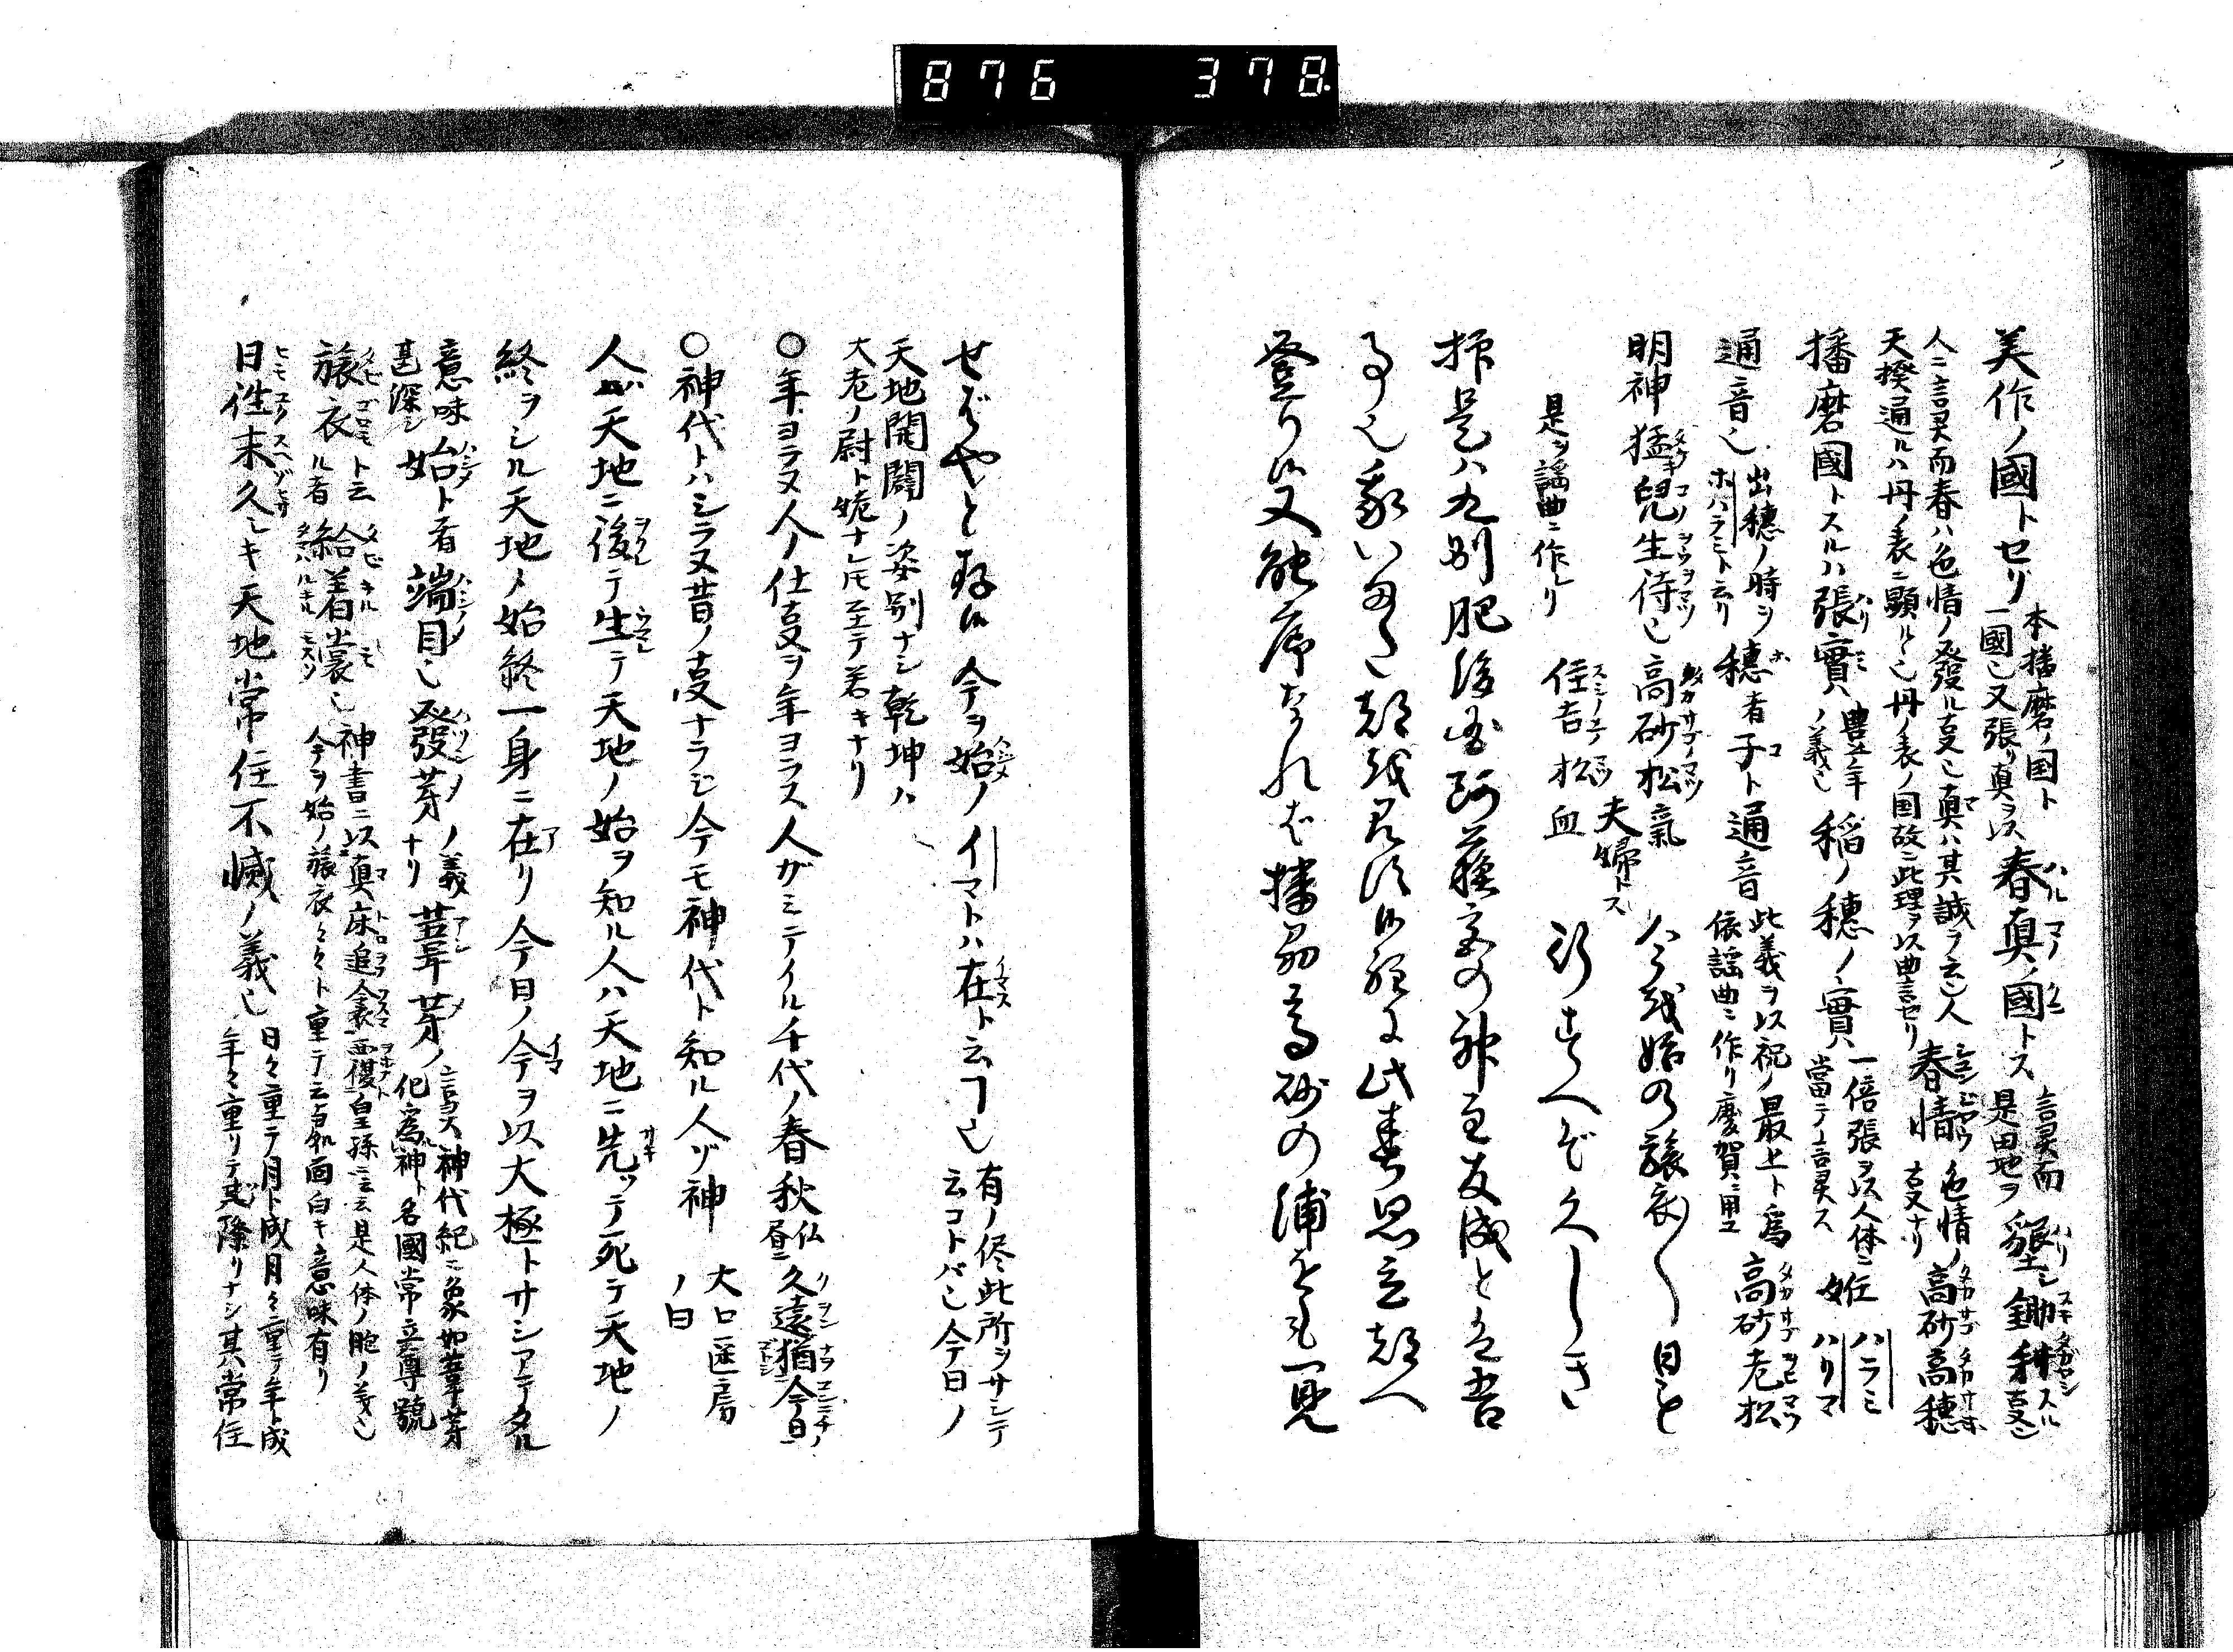 876 378
美作ノ國トセリ
本播磨ノ国ト
一國也又張リ真ヲ以
春真ノ國トス
言灵而
是田地ヲ
墾シ鋤耕スル
人ニ言灵而春ハ色情ノ發ル支也真ハ其誠ヲ云人
春情
色情ノ
支ナリ
高砂高穗
天揆通ルハ丹ノ表ニ顯ル也丹ノ表ノ国故ニ此理ヲ以曲言セリ
播磨國トスルハ張實
豊年
ノ義也
稲ノ穗ノ實
一倍張ヲ以人体ニ
當テ言灵ス
妊
ハラミ
ハリマ
通音也
出穗ノ時ヲ
ホハラミト云リ
穗者子ト通音
此義ヲ以祝ノ最上ト為
依謡曲ニ作リ慶賀ニ用ユ
高砂老松
明神猛兒生待也高砂松
夫婦トス
今を始の旅衣〳〵日も
是ヲ謡曲ニ作レリ
住吉松
行すゑぞ久しき
抑是ハ九州肥後国阿蘇宮の神主友成とは吾
事也我いまた都を見す候程に此春思立都へ
登り候又能序なれば播州高砂の浦をも一見
せばやと存候 今ヲ始ノイマトハ在ト云フ也
有ノ侭此所ヲサシテ
云コトバ也今日ノ
天地開闢ノ姿別ナシ乾坤ハ
大老ノ尉ト姥ナレ𪜈至テ若キナリ
〇年ヨラヌ人ノ仕支ヲ年ヨラス人ガミテイル千代ノ春秋
久遠猶今日
〇神代トハシラヌ昔ノ支ナラジ今モ神代ト知ル人ゾ神
ノ曰
人ガ天地ニ後テ生テ天地ノ始ヲ知ル人ハ天地ニ先ッテ死テ天地ノ
終ヲシル天地ノ始終一身ニ在リ今日ノ今ヲ以大極トサシアテタル
意味
甚深シ
始ト者端目也發芽
ノ義
ナリ
葦芽ノ
神代紀ニ象如葦芽
化為神ト名國常立尊號
旅衣
ト云
ル者
給着裳也神書ニ以真床追衾而覆皇孫ニ云云是人体ノ胞ノ義也
今ヲ始ノ旅衣々々ト重テ云支
面白キ意味有リ
日往末久シキ天地常住不滅ノ義也
日々重テ月ト成月々重テ年ト成
年々重リテ
際リナシ其常住